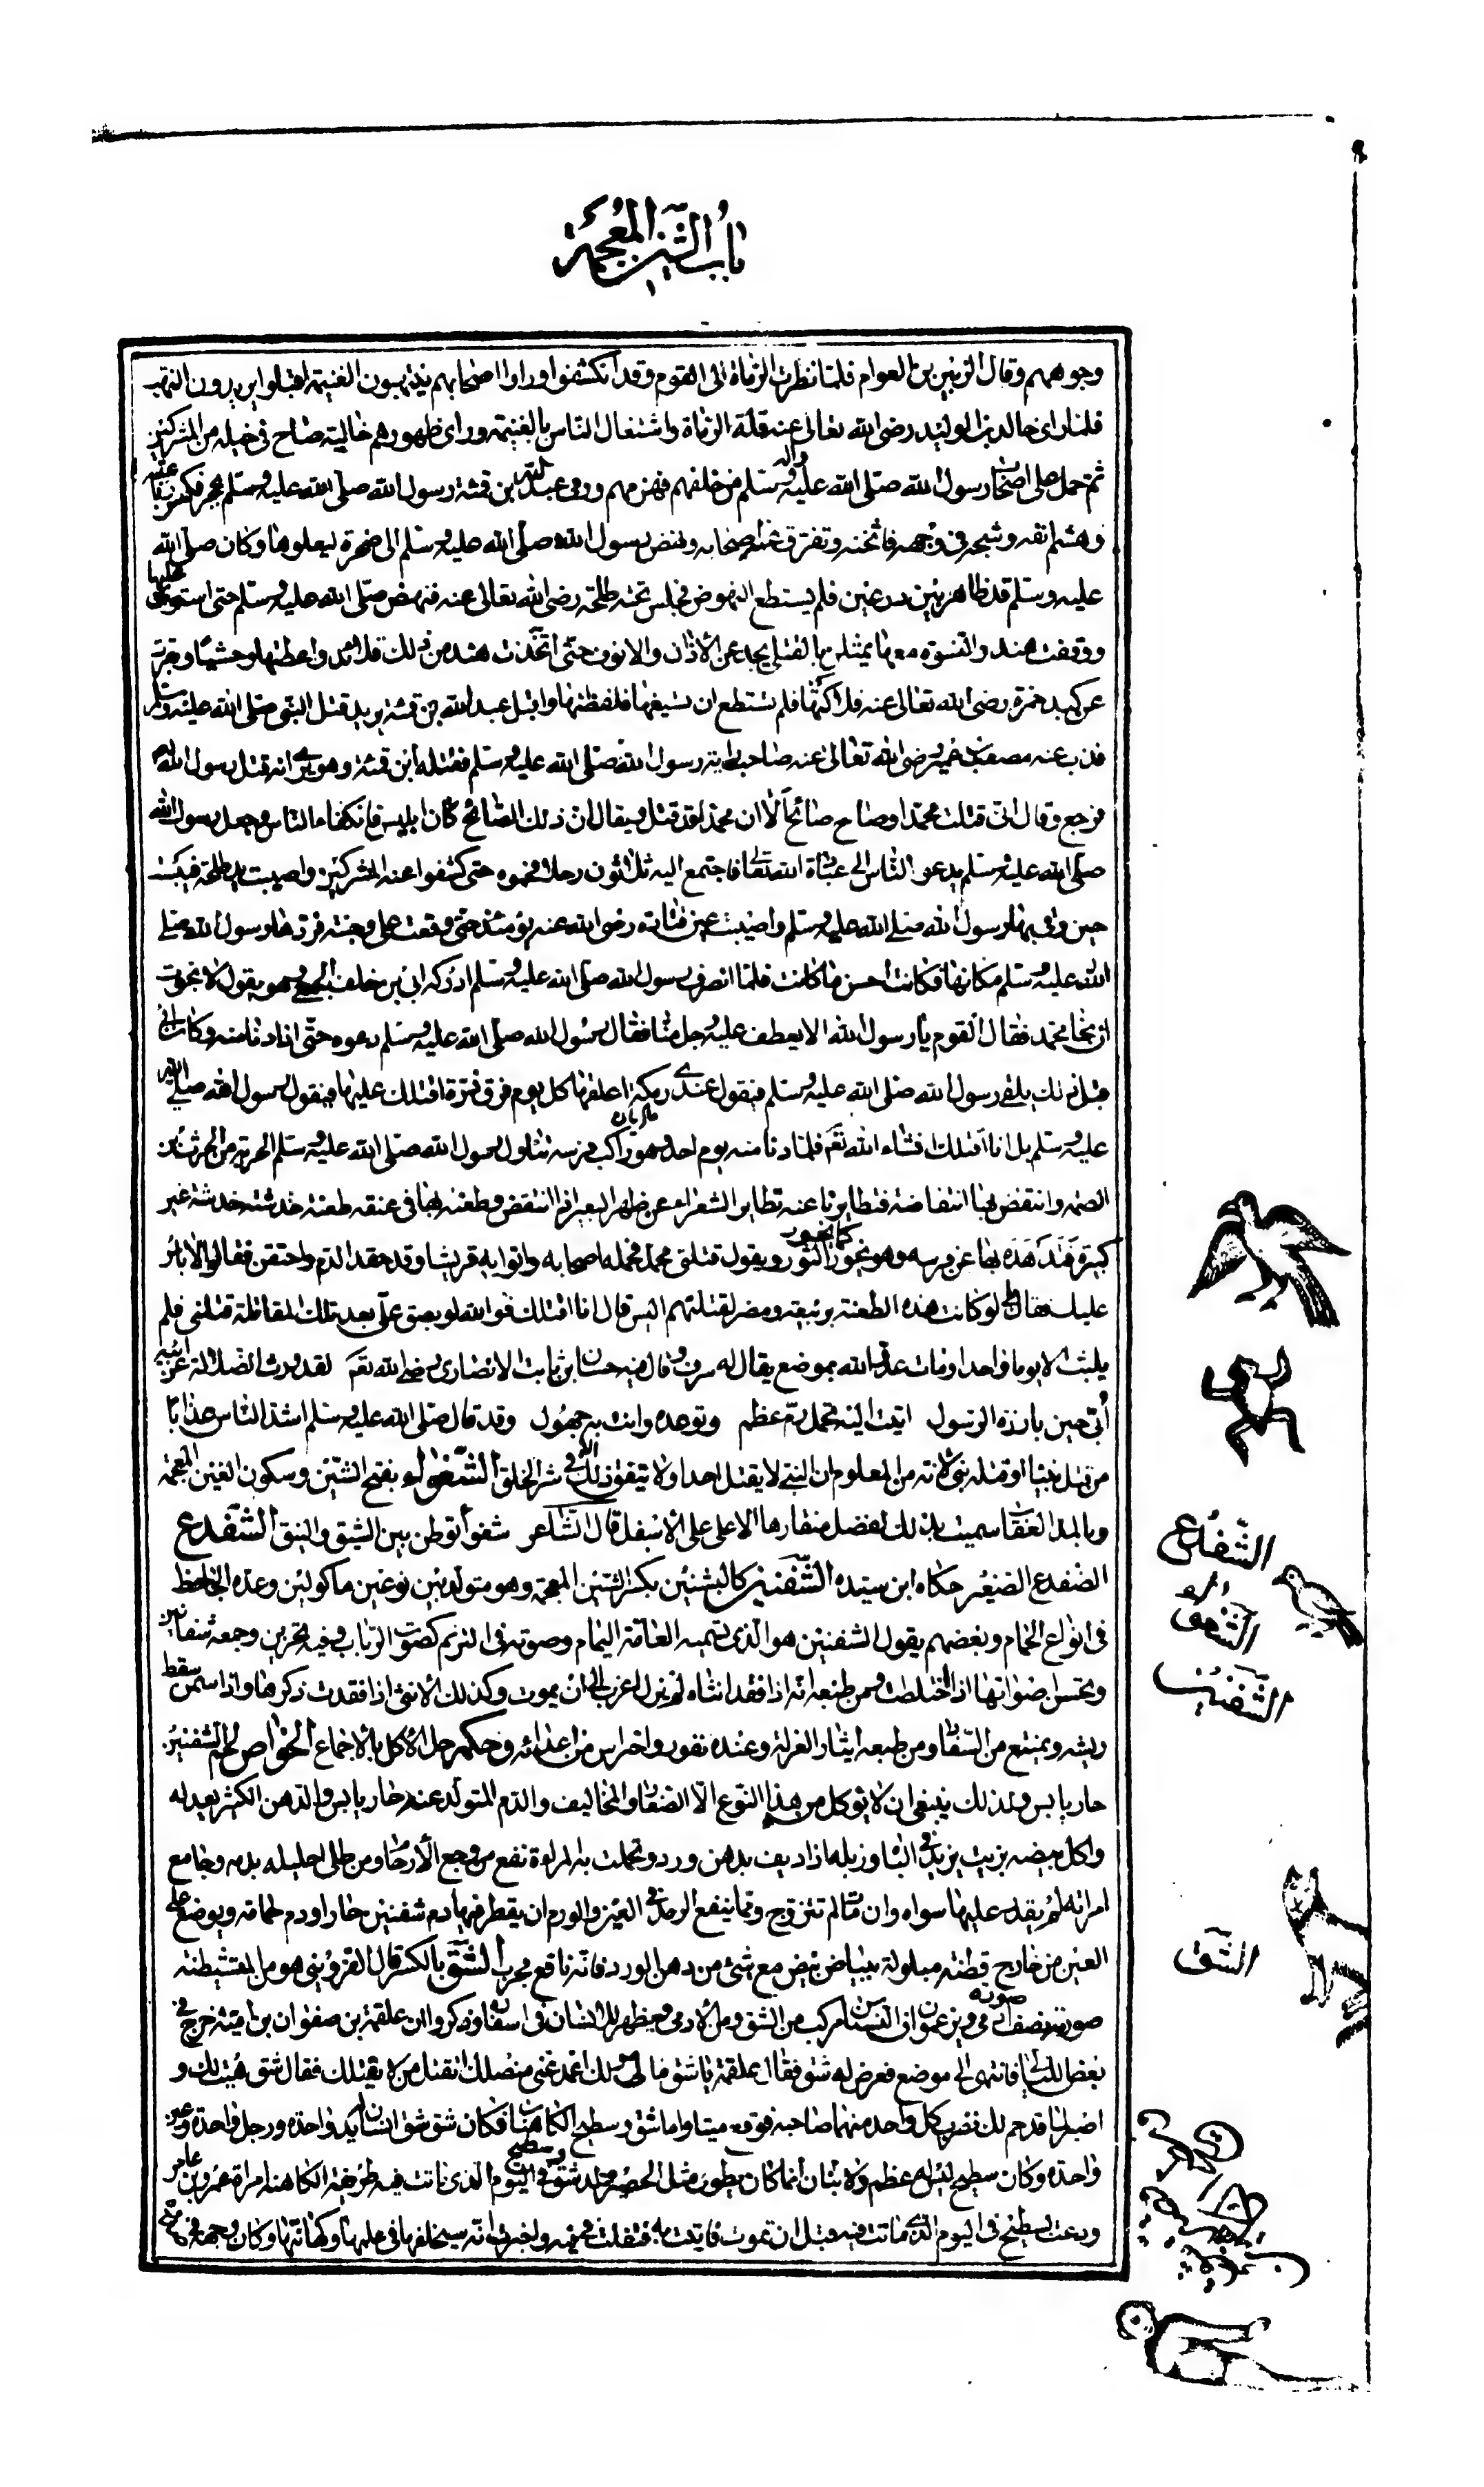 باب الشين المعجمة
وجوههم وقال الزبير بن العوام فلما نظرت الرماة الى القوم وقد انكشفوا وراوا اصحابهم ينتهبون الغنيمة اقبلوا يريدون النهب
فلما راى خالد بن الوليد رضى الله تعالى عنه قلة الرماة واشتغال الناس بالغنيمة وراى ظهورهم خالية صاح فى خيله من المشركين
ثم حمل على اصحاب رسول الله صلى الله عليه واله وسلم من خلفهم فهزمهم ورمى عبد الله بن قمئة رسول الله صلى الله عليه وسلم بحجر فكسر رباعيته
وهشم انفه وشجه فى وجهه فاثخنه وتفرق عنه اصحابه ونهض رسول الله صلى الله عليه وسلم الى صخرة ليعلوها وكان صلى الله
عليه وسلم قد ظاهر بين درعين فلم يستطع النهوض فجلس تحته طلحة رضى الله تعالى عنه فنهض صلى الله عليه وسلم حتى استوى عليها
ووقفت هند والنسوة معها يمثلن بالقتلى يجدعن الاذان والانوف حتى اتخذت هند من ذلك قلائد واعطتها وحشيا وبقرت
عن كبد حمزة رضى الله تعالى عنه فلاكتها فلم تستطع ان تسيغها فلفظتها واقبل عبد الله بن قمئة يريد قتل النبى صلى الله عليه وسلم
فذب عنه مصعب بن عمير رضى الله تعالى عنه صاحب راية رسول الله صلى الله عليه وسلم فقتله ابن قمئة وهو يرى انه قتل رسول الله
فرجع وقال انى قتلت محمدا وصاح صائح الا ان محمدا قد قتل ويقال ان ذلك الصائح كان ابليس فانكفاء الناس وجعل رسول الله
صلى الله عليه وسلم يدعو الناس الى عباد الله تعالى فاجتمع اليه ثلاثون رجلا فحموه حتى كشفوا عنه المشركين واصيبت يد طلحة فيبست
حين وقى بها رسول الله صلى الله عليه وسلم واصيبت عين قتادة رضى الله عنه يومئذ حتى وقعت على وجنته فردها رسول الله صلى
الله عليه وسلم مكانها فكانت احسن ما كانت فلما انصرف رسول الله صلى الله عليه وسلم ادركه ابى بن خلف الجمحى وهو يقول لا نجوت
ان نجا محمد فقال القوم يا رسول الله الا يعطف عليه رجل منا فقال رسول الله صلى الله عليه وسلم دعوه حتى اذا دنا منه وكان ابى
قبل ذلك يلقى رسول الله صلى الله عليه وسلم فيقول عندى رمكة اعلفها كل يوم فرق ذرة اقتلك عليها فيقول رسول الله صلى الله
عليه وسلم بل انا اقتلك انشاء الله تعم فلما دنا منه يوم احد وهو راكب فرسه تناول رسول الله صلى الله عليه وسلم الحربة من الحرث بن
الصمة وانتفض بها انتفاضة فتطايرنا عنه تطاير الشعراء عن ظهر البعير اذا انتفض وطعنه بها فى عنقه طعنة خدشته خدشة غير
كبيرة فتدهده بها عن فرسه وهو يخور كما يخور الثور ويقول قتلنى محمد فحمله اصحابه واتوا به قريشا وقد حقد الدم واحتقن فقالوا لا باس
عليك فقال بلى لو كانت هذه الطعنة بربيعة ومضر لقتلتهم اليس قال انا اقتلك فوالله لو بصق على بعد تلك المقاتلة قتلنى فلم
يلبث الا يوما واحدا ومات عدو الله بموضع يقال له سرف وقال فيه حسان ابن ثابت الانصارى رضى الله تعم لقد ورث الضلالة عن ابيه
أبى حين بارزه الرسول اتيت اليه تحمل رم عظم وتوعده وانت به جهول وقد قال صلى الله عليه وسلم اشد الناس عذابا
من قتل نبيا او قتله نبى لانه من المعلوم ان النبى لا يقتل احدا ولا يتفق ذلك الا فى شر الخلق الشغواء بفتح الشين وسكون الغين المعجمة
وبالمد العقاب سميت بذلك لفضل منقارها الاعلى على الاسفل قال الشاعر شغوا توطن بين الشيق والنيق الشفدع
الضفدع الصغير حكاه ابن سيده الشفنين كالبشنين بكسر الشين المعجمة وهو متولد بين نوعين ماكولين وعده الجاحظ
فى انواع الحمام وبعضهم يقول الشفنين هو الذى تسميه العامة اليمام وصوته فى الترنم كصوت الرباب وفيه تحزين وجمعه شفانين
وتحسن اصواتها اذا اختلطت ومن طبعه انه اذا فقد انثاه لم يزل اعزب الى ان يموت وكذلك الانثى اذا فقدت ذكرها واذا سمن سقط
ريشه ويمتنع من السفاد ومن طبعه ايثار العزلة وعنده نفور واحتراس من اعدائه وحكمه حل الاكل بالاجماع الخواص لحم الشفنين
حار يابس ولذلك ينبغى ان لا يؤكل من هذا النوع الا الصغار والمخاليف والدم المتولد عنه حار يابس والدهن الكثير يعدله
واكل بيضه بزيت يزيد فى الباه وزبله اذا ديف بدهن ورد وتحملت به المراة نفع من وجع الارحام ومن طلى احليله بدمه وجامع
امراته لم يقدر عليها سواه وان مات لم تتزوج ومما ينفع الرمد فى العين والورم ان يقطر فيها دم شفنين حارا او دم حمامة ويوضع على
العين من خارج قطنة مبلولة ببياض بيض مع شئ من دهن الورد فانه نافع مجرب الشق بالكسر قال القزوينى هو من المتشيطنة
صورته نصف صورة آدمى ويزعمون ان النسناس مركب من الشق ومن الادمى ويظهر للانسان فى اسفاره وذكروا ان علقمة بن صفوان بن امية خرج فى
بعض الليالى فانتهى الى موضع فعرض له شق فقال علقمة يا شق مالى ولك اغمد عنى منصلك اتقتل من لا يقتلك فقال شق هيت لك و
اصبر لما قد حم لك فضرب كل واحد منهما صاحبه فوقع ميتا واما شق وسطيح الكاهنان فكان شق شق انسان له يد واحدة ورجل واحدة وعين
واحدة وكان سطيح ليس له عظم ولا بنان انما كان يطوى مثل الحصير وولد شق وسطيح فى اليوم الذى ماتت فيه طريفة الكاهنة امراة عمرو بن عامر
ودعت بسطيح فى اليوم الذى ماتت فيه قبل ان تموت فاتيت به فتفلت فى فيه واخبرت انه سيخلفها فى علمها وكهانتها وكان وجهه فى
الشفدع
الشفنين
الشق